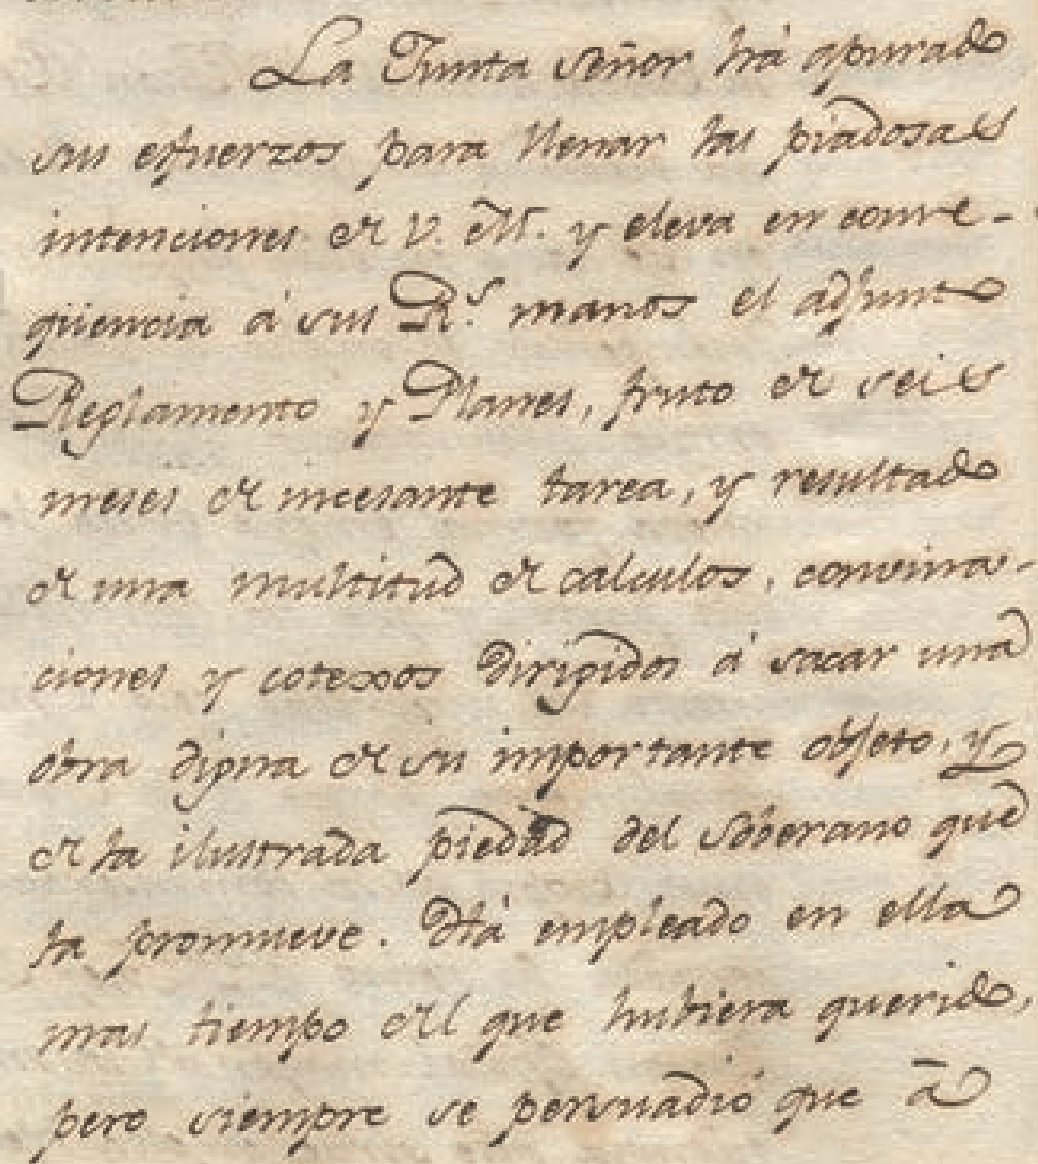 La Junta Señor há apurado
sus esfuerzos para llenar las piadosas
intenciones de V. M. y eleva en conse-
qüencia á sus R.s manos el adjunto
Reglamento y Planes, fruto de seis
meses de incesante tarea, y resultado
de una multitud de calculos, convina-
ciones y cotexos dirigidos á sacar una
obra digna de su importante objeto, y
de la ilustrada piedad del Soberano que
la promueve. Há empleado en ella
mas tiempo del que hubiera querido,
pero siempre se persuadió que á